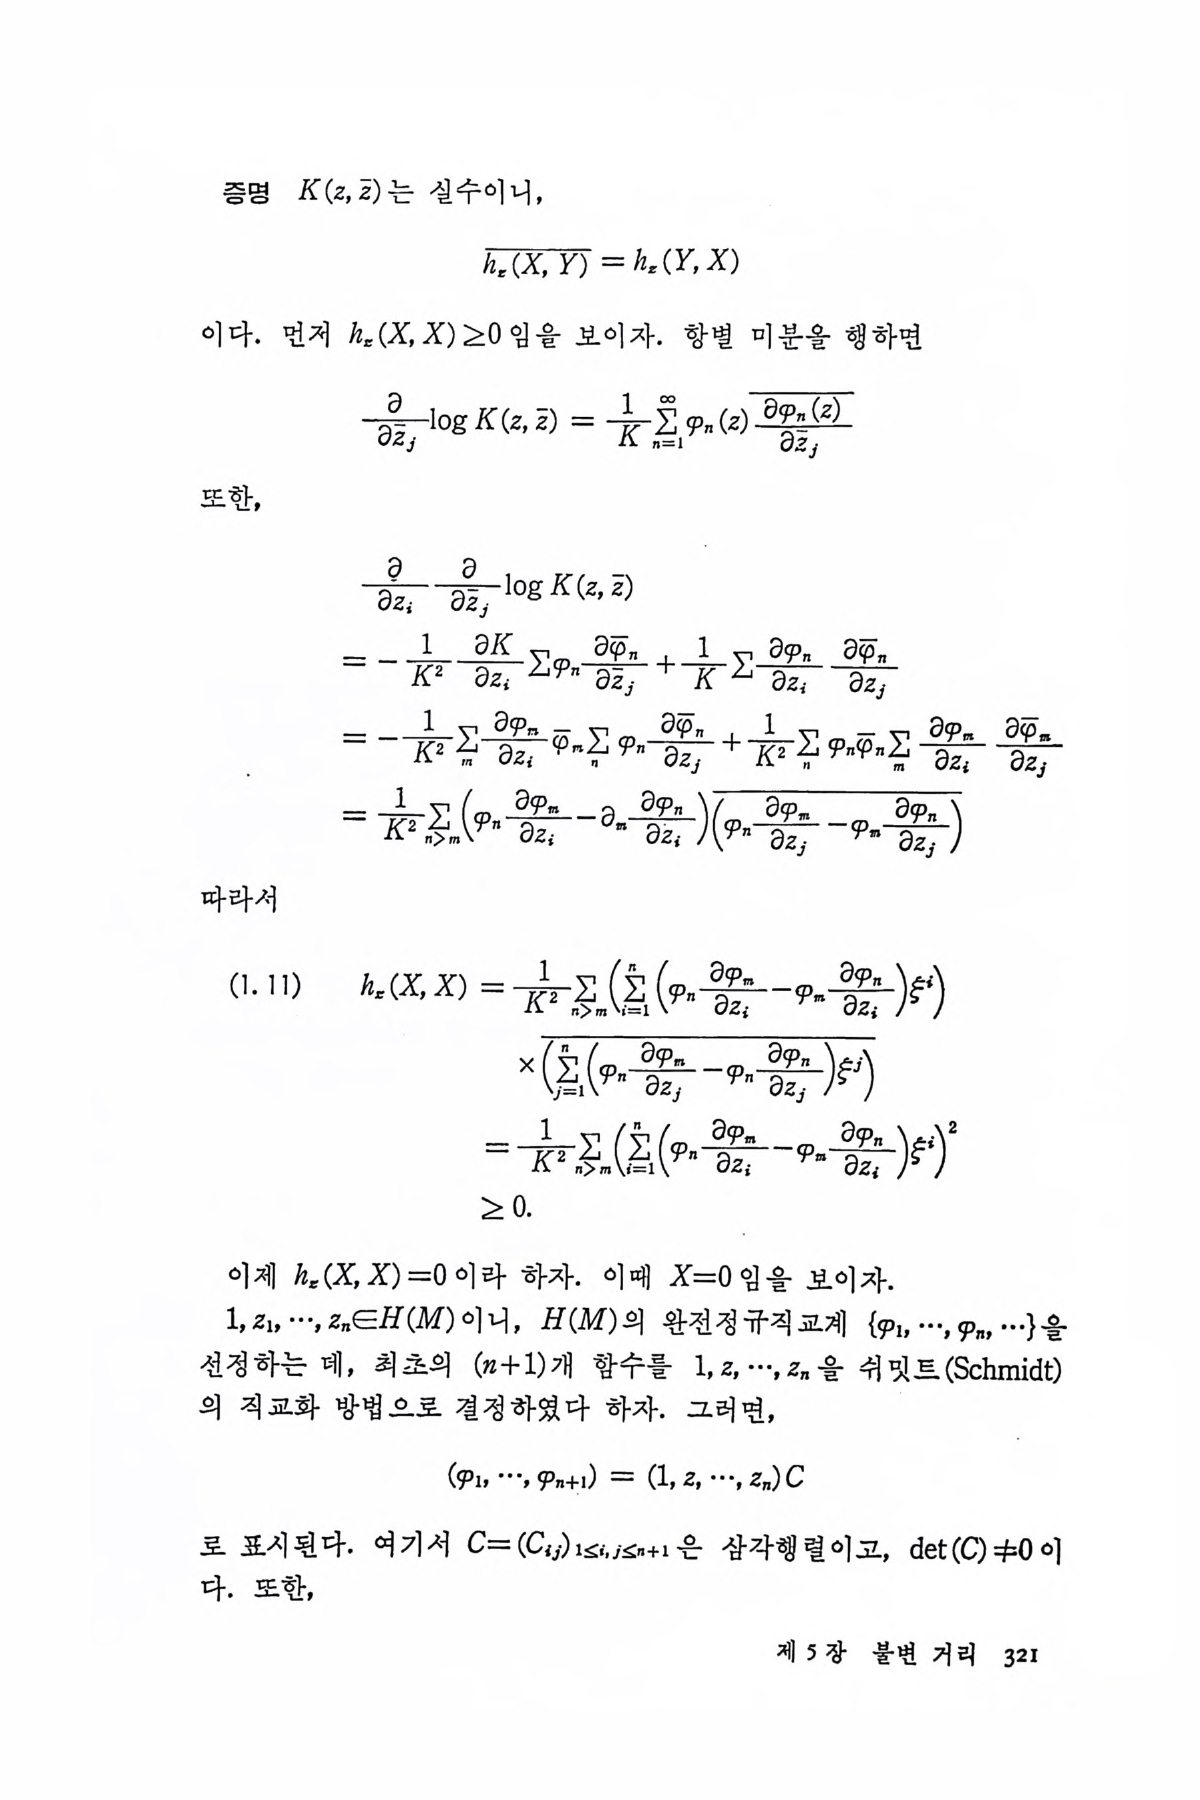 증명 $K(z, \bar{z})$는 실수이니,
$\overline{h_z(X, Y)} = h_z(Y, X)$
이다. 먼저 $h_z(X, X) \geq 0$임을 보이자. 항별 미분을 행하면
$\frac{\partial}{\partial \bar{z}_j} \log K(z, \bar{z}) = \frac{1}{K} \sum_{n=1}^{\infty} \varphi_n(z) \frac{\overline{\partial \varphi_n(z)}}{\partial \bar{z}_j}$
또한,
$\frac{\partial}{\partial z_i} \frac{\partial}{\partial \bar{z}_j} \log K(z, \bar{z})$
$= -\frac{1}{K^2} \frac{\partial K}{\partial z_i} \sum \varphi_n \frac{\partial \bar{\varphi}_n}{\partial \bar{z}_j} + \frac{1}{K} \sum \frac{\partial \varphi_n}{\partial z_i} \frac{\partial \bar{\varphi}_n}{\partial z_j}$
$= -\frac{1}{K^2} \sum_m \frac{\partial \varphi_m}{\partial z_i} \bar{\varphi}_m \sum_n \varphi_n \frac{\partial \bar{\varphi}_n}{\partial z_j} + \frac{1}{K^2} \sum_n \varphi_n \bar{\varphi}_n \sum_m \frac{\partial \varphi_m}{\partial z_i} \frac{\partial \bar{\varphi}_m}{\partial z_j}$
$= \frac{1}{K^2} \sum_{n>m} \left( \varphi_n \frac{\partial \varphi_m}{\partial z_i} - \partial_m \frac{\partial \varphi_n}{\partial z_i} \right) \overline{\left( \varphi_n \frac{\partial \varphi_m}{\partial z_j} - \varphi_m \frac{\partial \varphi_n}{\partial z_j} \right)}$
따라서
(1. 11) $h_z(X, X) = \frac{1}{K^2} \sum_{n>m} \left( \sum_{i=1}^{n} \left( \varphi_n \frac{\partial \varphi_m}{\partial z_i} - \varphi_m \frac{\partial \varphi_n}{\partial z_i} \right) \xi^i \right)$
$\times \overline{\left( \sum_{j=1}^{n} \left( \varphi_n \frac{\partial \varphi_m}{\partial z_j} - \varphi_n \frac{\partial \varphi_n}{\partial z_j} \right) \xi^j \right)}$
$= \frac{1}{K^2} \sum_{n>m} \left( \sum_{i=1}^{n} \left( \varphi_n \frac{\partial \varphi_m}{\partial z_i} - \varphi_m \frac{\partial \varphi_n}{\partial z_i} \right) \xi^i \right)^2$
$\geq 0.$
이제 $h_z(X, X) = 0$이라 하자. 이때 $X = 0$임을 보이자.
$1, z_1, \cdots, z_n \in H(M)$이니, $H(M)$의 완전정규직교계 $\{\varphi_1, \cdots, \varphi_n, \cdots\}$을
선정하는 데, 최초의 $(n+1)$개 함수를 $1, z, \cdots, z_n$을 쉬밋트(Schmidt)
의 직교화 방법으로 결정하였다 하자. 그러면,
$(\varphi_1, \cdots, \varphi_{n+1}) = (1, z, \cdots, z_n) C$
로 표시된다. 여기서 $C = (C_{ij})_{1 \leq i, j \leq n+1}$은 삼각행렬이고, $\det(C) \neq 0$이
다. 또한,
제 5 장 불변 거리 321